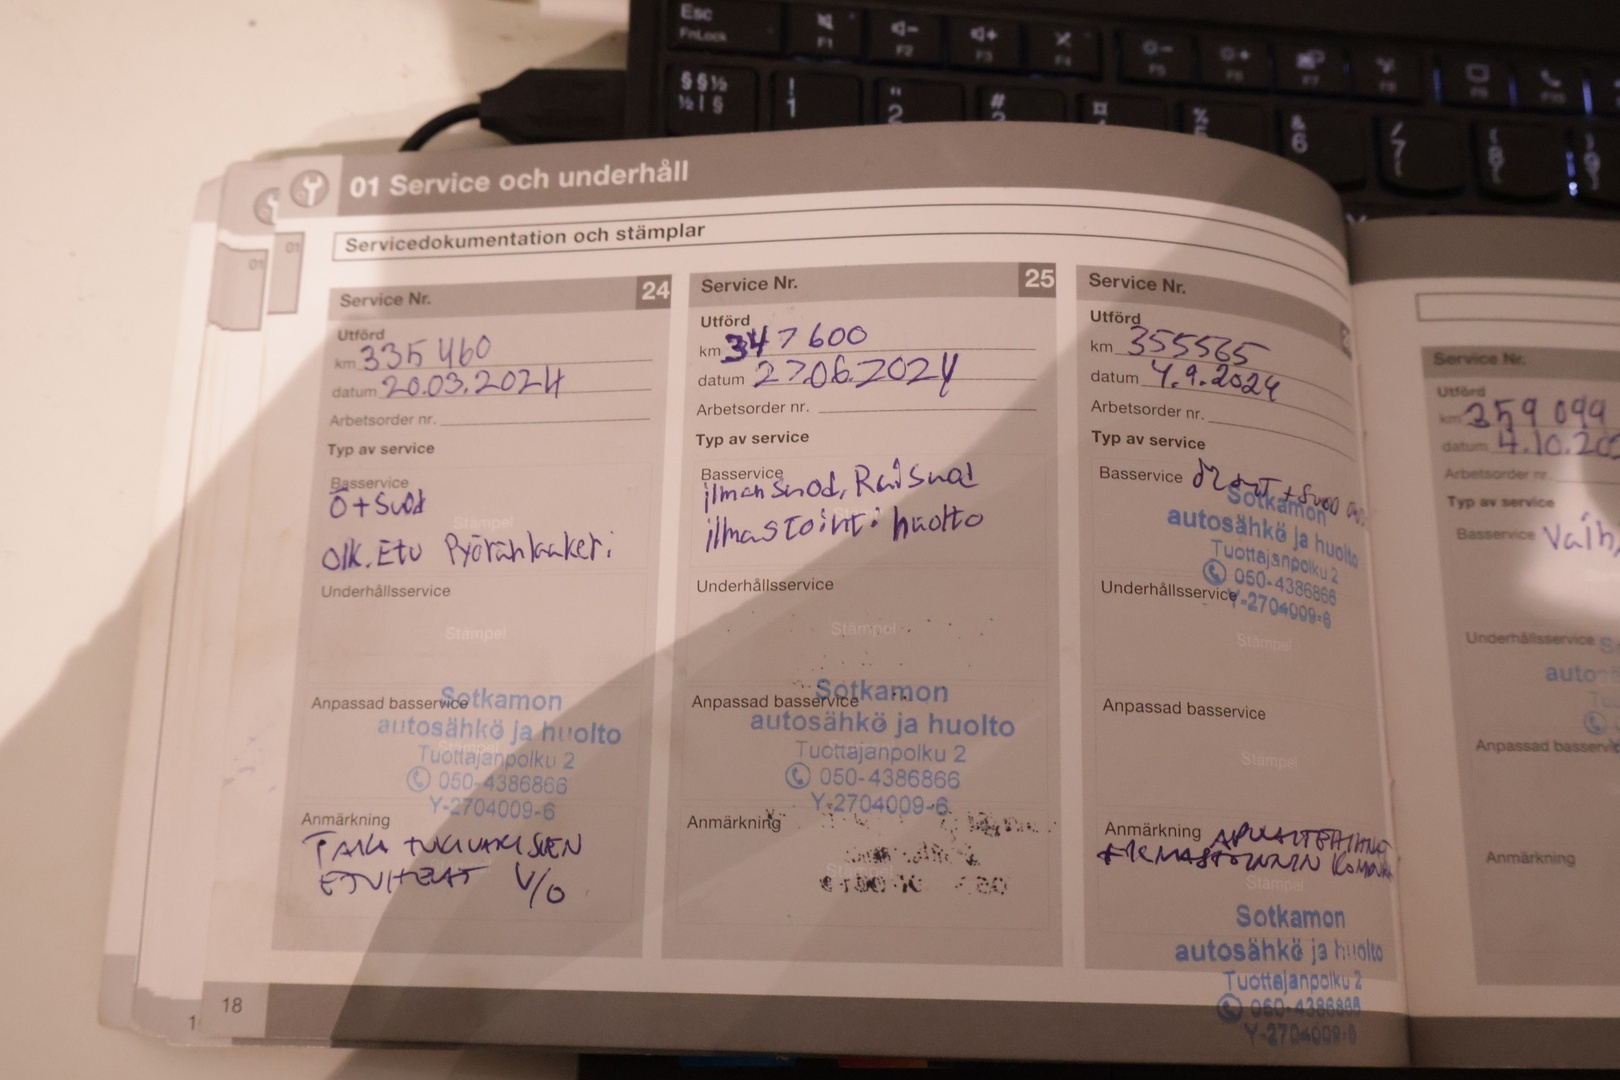 Esc
FnLock
F1
F2
F3
F4
F5
F6
F7
F8
F9
F10
§ § ½
½ | §
!
1
"
2
#
3
¤
%
&
6
/
7
(
8
)
9
01 Service och underhåll
01
01
Servicedokumentation och stämplar
Service Nr. 24
Utförd
km 335 460
datum 20.03.2024
Arbetsorder nr.
Typ av service
Basservice
Ö+Suod
Stämpel
olk. Etu Pyöränlaakeri
Underhållsservice
Stämpel
Anpassad basservice
Sotkamon
autosähkö ja huolto
Stämpel
Tuottajanpolku 2
050-4386866
Y-2704009-6
Anmärkning
TAKA TUKIVARSIEN
ETUHELAT V/O
18
Service Nr. 25
Utförd
km 347600
datum 27.06.2024
Arbetsorder nr.
Typ av service
Basservice
ilmansuod, Raisuod
ilmastoint. huolto
Underhållsservice
Stämpel
Anpassad basservice
Sotkamon
autosähkö ja huolto
Tuottajanpolku 2
050-4386866
Y-2704009-6
Anmärkning
Service Nr.
Utförd
km 355565
datum 4.9.2024
Arbetsorder nr.
Typ av service
Basservice
Sotkamon
autosähkö ja huolto
Tuottajanpolku 2
050-4386866
Y-2704009-6
Underhållsservice
Stämpel
Anpassad basservice
Stämpel
Anmärkning APULAITEHIHNA
Stämpel
Sotkamon
autosähkö ja huolto
Tuottajanpolku 2
050-4386866
Y-2704009-6
Service Nr.
Utförd
km 359 099
datum 4.10.202
Arbetsorder nr.
Typ av service
Basservice Vaih
Underhållsservice
auto
Anpassad basservic
Anmärkning